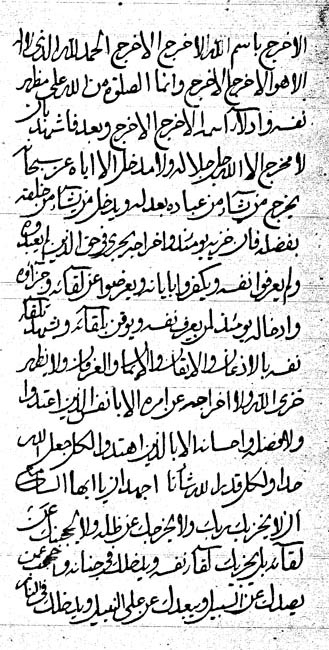 الاخرج باسم الله الاخرج الاخرج الحمد لله الذى لا اله
الا هو الاخرج الاخرج وانما الصلوة من الله على مظهر
نفسه وادلاء اسمه الاخرج الاخرج وبعد فاشهد بان
لا مخرج الا الله جل جلاله ولا مدخل الا اياه عز سبحانه
يخرج من يشاء من عباده بعدله ويدخل من يشاء من خلقه
بفضله فان خزيه يومئذ واخراجه يجرى فى حق الذين لم يعبدوه
ولم يعرفوا نفسه ويكفروا باياته ويعرضوا عن لقائه وجزائه
وادخاله يومئذ لمن يعرف نفسه ويوقن بلقائه ويشهد
نفسه بالاذعان والايقان والايمان والعرفان ولا يظهر
خزى الله ولا اخراجه عن امره الا بانفس الذين اعتدوا
ولا فضله واحسانه الا بالذين اهتدوا ولكل جعل الله
حدا ولكل قدر الله شأنا اجهد ان يا ايها
ان لا يخزيك ربك ولا يخرجك عن ظله ولا يحجبنك عن
لقائه بل يجزيك لقاء نفسه ويدخلك فى جنانه
يصدك عن السبيل ويبعدك عن على النبيل ويدخلك فى النار